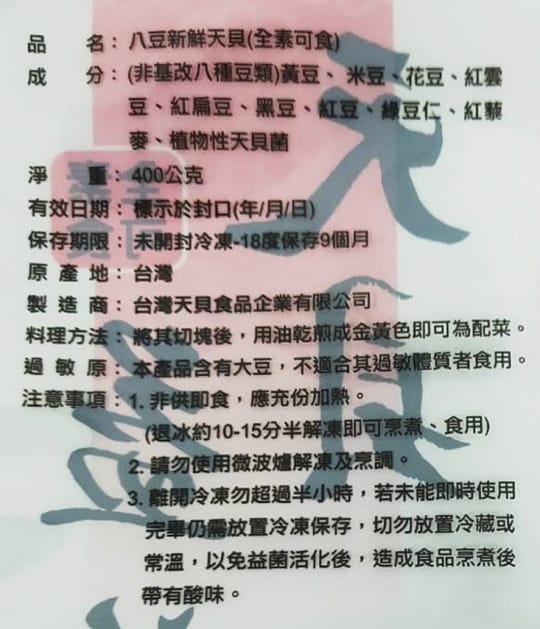 品名：八豆新鮮天貝(全素可食)
成分：(非基改八種豆類)黃豆、米豆、花豆、紅雲
豆、紅扁豆、黑豆、紅豆、綠豆仁、紅藜
麥、植物性天貝菌
淨重：400公克
有效日期：標示於封口(年/月/日)
保存期限：未開封冷凍-18度保存9個月
原產地：台灣
製造商：台灣天貝食品企業有限公司
料理方法：將其切塊後，用油乾煎成金黃色即可為配菜。
過敏原：本產品含有大豆，不適合其過敏體質者食用。
注意事項：1. 非供即食，應充份加熱。
(退冰約10-15分半解凍即可烹煮、食用)
2. 請勿使用微波爐解凍及烹調。
3. 離開冷凍勿超過半小時，若未能即時使用
完畢仍需放置冷凍保存，切勿放置冷藏或
常溫，以免益菌活化後，造成食品烹煮後
帶有酸味。
天貝